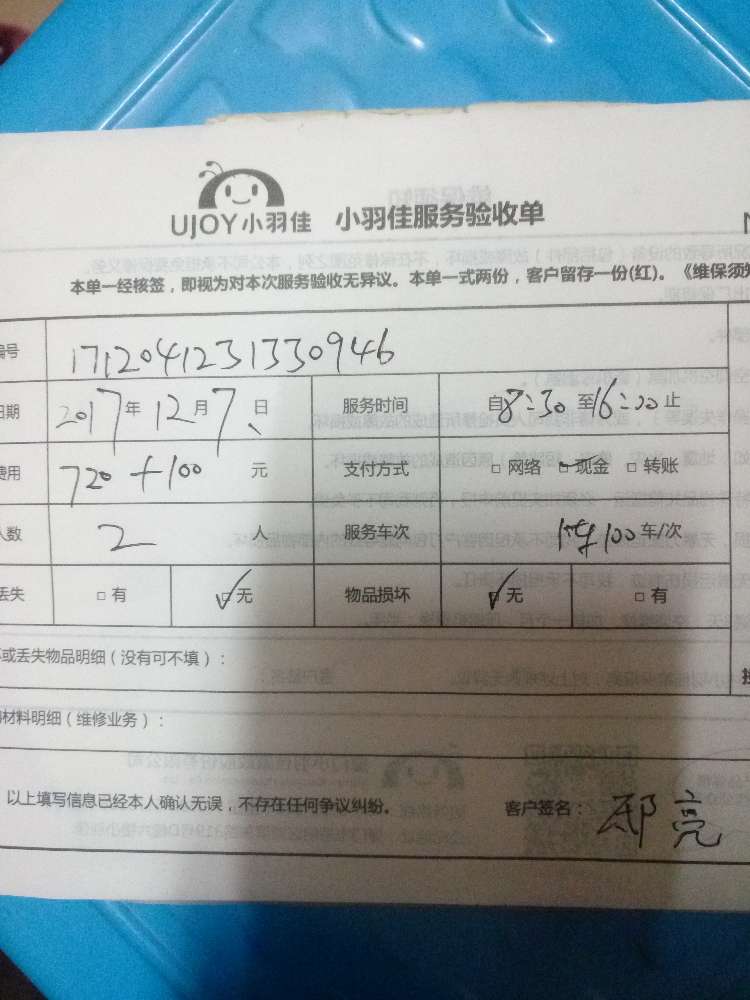 UJOY小羽佳 小羽佳服务验收单
本单一经核签，即视为对本次服务验收无异议。本单一式两份，客户留存一份(红)。《维保须知
编号 1712041231330946
日期 2017年12月7日 服务时间 自8:30至16:00止
费用 720+100 元 支付方式 □网络 □现金 □转账
人数 2 人 服务车次 100车/次
丢失 □有 □无 物品损坏 □无 □有
坏或丢失物品明细（没有可不填）：
材料明细（维修业务）：
以上填写信息已经本人确认无误，不存在任何争议纠纷。 客户签名： 邢亮